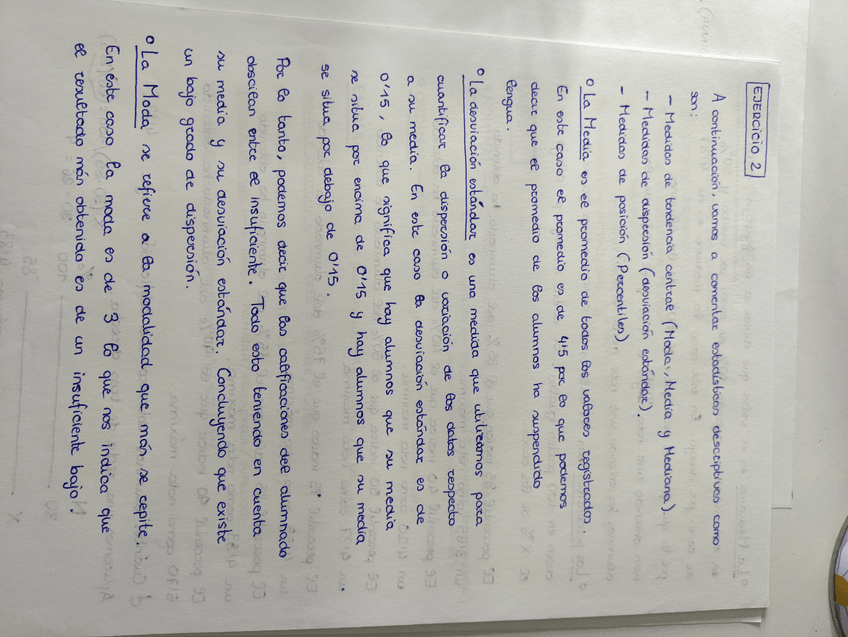 EJERCICIO 2
A continuación, vamos a comentar estadísticos desciptivos como
son:
- Medidas de tendencia central (Moda, Media y Mediana)
- Medidas de dispersión (desviación estándar).
- Medidas de posición (Percentiles).
o La Media es el promedio de todos los valores registrados.
En este caso el promedio es de 4'5 por lo que podemos
decir que el promedio de los alumnos ha suspendido
lengua.
o La desviación estándar es una medida que utilizamos para
cuantificar la dispersión o variación de los datos respecto
a su media. En este caso la desviación estándar es de
0'15, lo que significa que hay alumnos que su media
se situa por encima de 0'15 y hay alumnos que su media
se situa por debajo de 0'15.
Por lo tanto, podemos decir que las calificaciones del alumnado
obscilan entre el insuficiente. Todo esto teniendo en cuenta
su media y su desviación estándar. Concluyendo que existe
un bajo grado de dispersión.
o La Moda se refiere a la modalidad que más se repite.
En este caso la moda es de 3 lo que nos indica que
el resultado más obtenido es de un insuficiente bajo.